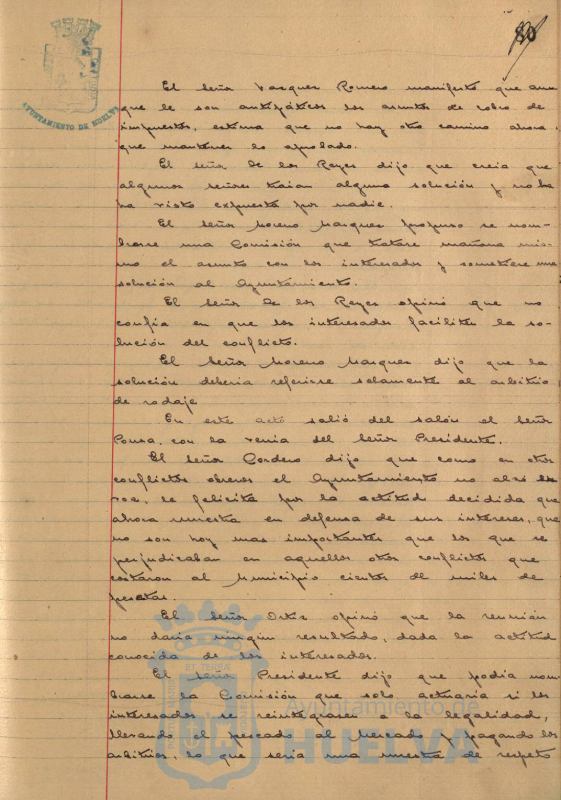 80
AYUNTAMIENTO DE HUELVA
El Señor Vazquez Romero manifestó que aun-
que le son antipáticos los asuntos de cobro de
impuestos, estima que no hay otro camino ahora
que mantener lo aprobado.
El Señor de los Reyes dijo que creia que
algunos señores traian alguna solución y no la
ha visto expuesta por nadie.
El Señor Moreno Marquez propuso se nom-
brase una Comisión que tratase mañana mis-
mo el asunto con los interesados y sometiese una
solución al Ayuntamiento.
El Señor de los Reyes opinó que no
confia en que los interesados faciliten la so-
lución del conflicto.
El Señor Moreno Marquez dijo que la
solución deberia referirse solamente al arbitrio
de rodaje
En este acto salió del salón el Señor
Ponsa, con la venia del Señor Presidente.
El Señor Cordero dijo que como en otros
conflictos obreros el Ayuntamiento no alzó la
voz, le felicita por la actitud decidida que
ahora muestra en defensa de sus intereses, que
no son hoy mas importantes que los que se
perjudicaban en aquellos otros conflictos que
costaron al Municipio cientos de miles de
pesetas.
El Señor Ortiz opinó que la reunión
no daria ningún resultado, dada la actitud
conocida de los interesados.
El Señor Presidente dijo que podia nom-
brarse la Comisión que solo actuaria si los
interesados se reintegrasen a la legalidad,
llevando el pescado al Mercado y pagando los
arbitrios, lo que seria una muestra de respeto
Ayuntamiento de
HUELVA